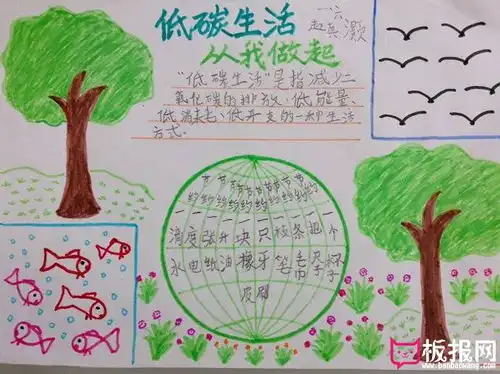 低碳生活
从我做起
一六
"低碳生活"是指减少二
氧化碳的排放,低能量、
低消耗、低开支的一种生活
方式。
节约一滴水
节约一度电
节约一张纸
节约一升油
节约一块橡皮
节约一只牙刷
节约一枝笔
节约一条毛巾
节约一把尺子
节约一个杯子
板报网
www.banbaowang.com